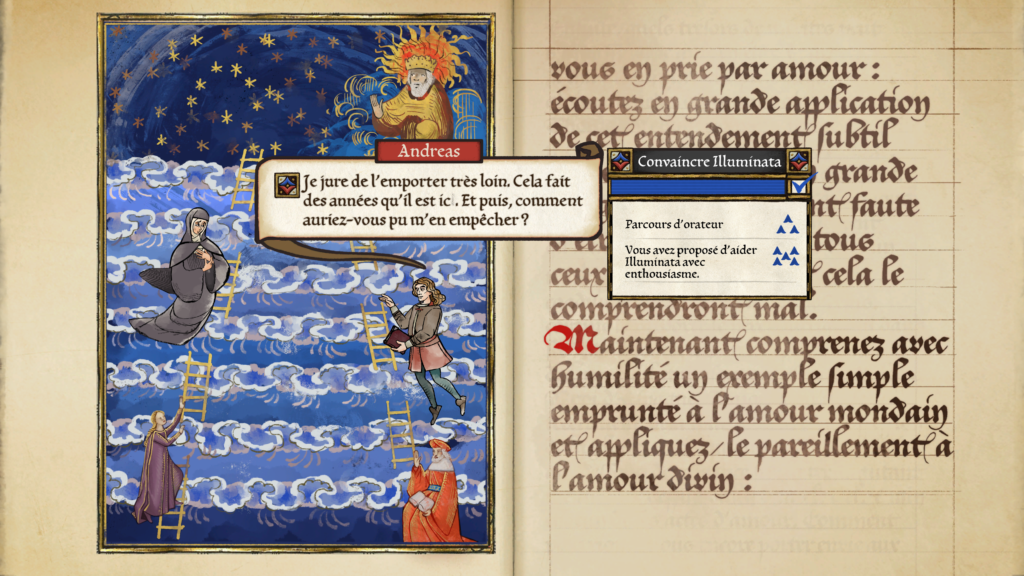 Andreas
Je jure de l'emporter très loin. Cela fait
des années qu'il est ici. Et puis, comment
auriez-vous pu m'en empêcher ?
Convaincre Illuminata
Parcours d'orateur
Vous avez proposé d'aider
Illuminata avec
enthousiasme.
vous en prie par amour :
écoutez en grande application
de cet entendement subtil
grande
faute
tous
ceux cela le
comprendront mal.
Maintenant comprenez avec
humilité un exemple simple
emprunté à l'amour mondain
et appliquez le pareillement à
l'amour divin :